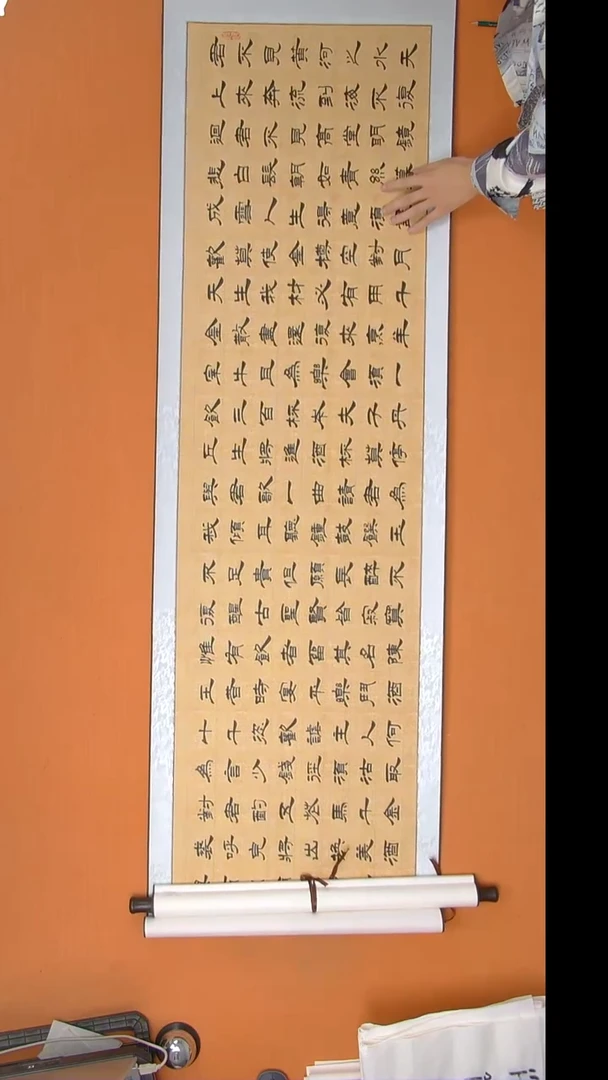 君不見黃河之水天
上來奔流到海不復
迴君不見高堂明鏡
悲白髮朝如青絲暮
成雪人生得意須
歡莫使金樽空對月
天生我材必有用千
金散盡還復來烹羊
宰牛且為樂會須一
飲三百杯岑夫子丹
丘生將進酒杯莫停
與君歌一曲請君為
我傾耳聽鐘鼓饌玉
不足貴但願長醉不
復醒古聖賢皆寂寞
惟有飲者留其名陳
王昔時宴平樂鬥酒
十千恣歡謔主人何
為言少錢徑須沽取
對君酌五花馬千金
裘呼兒將出換美酒